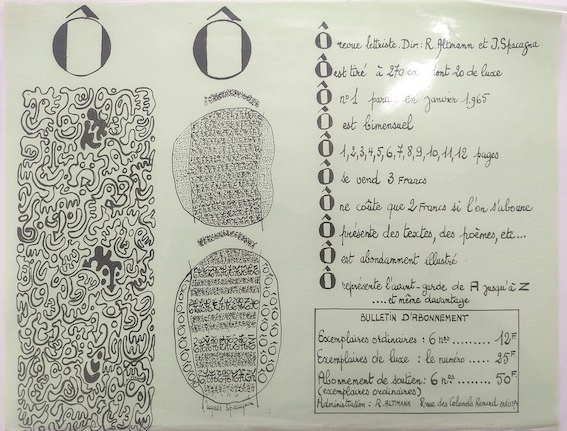 Ô
Ô
Ô revue lettriste. Dir: R. Altmann et J. Spacagna
Ô est tiré à 270 ex dont 20 de luxe
Ô n° 1 paru en janvier 1965
Ô est bimensuel
Ô 1,2,3,4,5,6,7,8,9,10,11,12 pages
Ô se vend 3 Francs
Ô ne coûte que 2 Francs si l'on s'abonne
Ô présente des textes, des poèmes, etc...
Ô est abondamment illustré
Ô représente l'avant-garde de A jusqu'à Z
....et même davantage
BULLETIN D'ABONNEMENT
Exemplaires ordinaires : 6 nos .......... 12F.
Exemplaires de luxe : le numéro ..... 25F.
Abonnement de soutien: 6 nos ........ 50F.
(exemplaires ordinaires)
Administration : R. ALTMANN rue des Colonels Renard